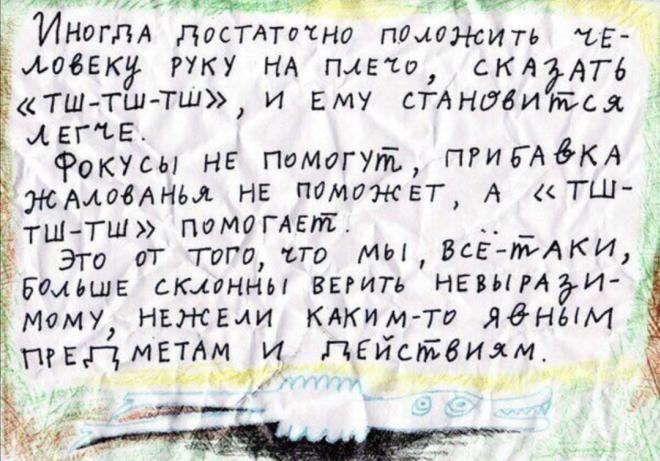 Иногда достаточно положить че-
ловеку руку на плечо, сказать
«тш-тш-тш», и ему становится
легче.
Фокусы не помогут, прибавка
жалованья не поможет, а «тш-
тш-тш» помогает.
Это от того, что мы, всё-таки,
больше склонны верить невырази-
мому, нежели каким-то явным
предметам и действиям.